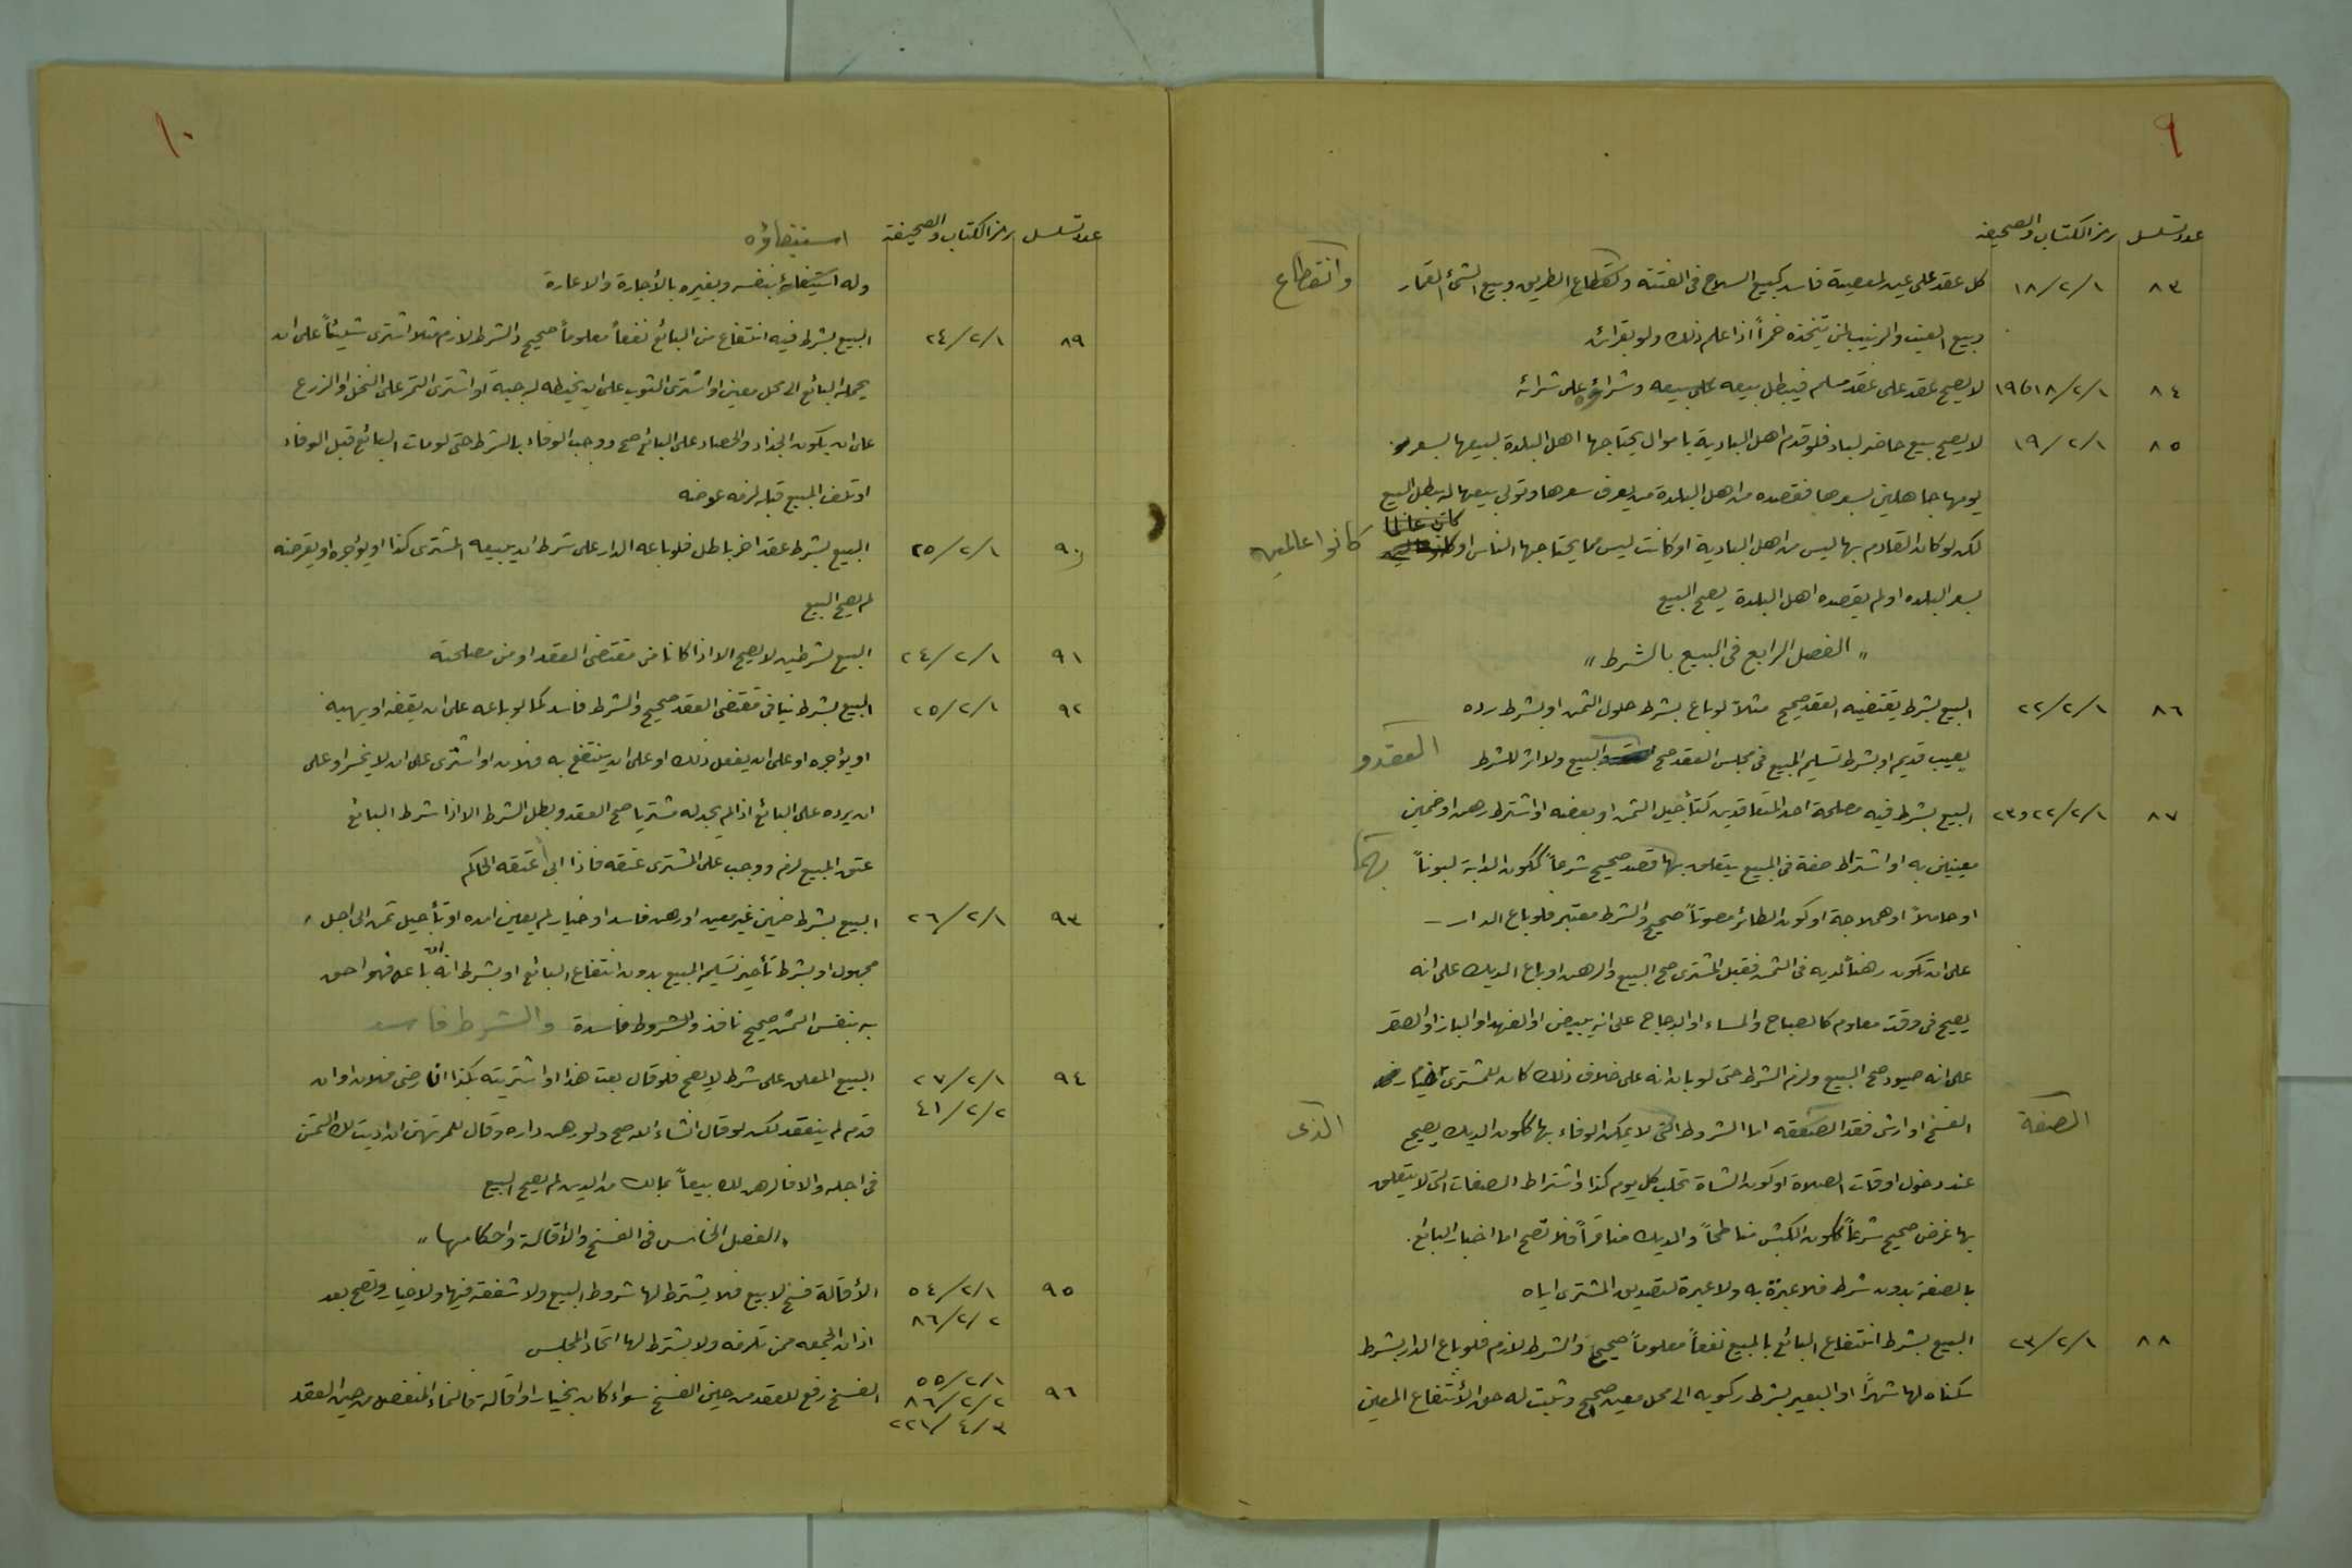 ٩
عدد تسلسل رمز الكتاب والصحيفة
٨٣ ١/٢/١٨ كل عقد على عين لمعصية فاسد كبيع السلاح في الفتنة وانقطاع الطريق وبيع الشئ القمار وانقطاع
وبيع العنب والزبيب لمن يتخذه خمراً اذا علم ذلك ولو بقرائن
٨٤ ١/٢/١٨و١٩ لا يصح عقد على عقد مسلم فيبطل بيعه على بيعه وشراؤه على شرائه
٨٥ ١/٢/١٩ لا يصح بيع حاضر لباد فلو قدم اهل البادية باموال يحتاجها اهل البلدة لبيعها بسعر
يومها جاهلين بسعرها فقصده من اهل البلدة من يعرف سعرها وتولى بيعها له بطل البيع
لكن لو كان القادم بها ليس من اهل البادية او كانت ليس مما يحتاجها الناس او كانوا عالمين
بسعر البلده او لم يقصده اهل البلدة يصح البيع
" الفصل الرابع في البيع بالشرط "
٨٦ ١/٢/٢٢ البيع بشرط يقتضيه العقد صحيح مثلاً لو باع بشرط حلول الثمن او بشرط رده
بعيب قديم او بشرط تسليم المبيع في مجلس العقد صح البيع ولا اثر للشرط العقد و
٨٧ ١/٢/٢٢و٢٣ البيع بشرط فيه مصلحة احد المتعاقدين كتأجيل الثمن او بعضه او اشترط رهن او ضمين
معينين به او اشتراط صفة في المبيع يتعلق بها قصد صحيح شرعاً ككون الدابة لبوناً بهما
او حاملاً او هملاجة او كون الطائر مصوتاً صحيح والشرط معتبر فلو باع الدار ـ
على ان تكون رهناً لديه في الثمن فقبل المشترى صح البيع والرهن او باع الديك على انه
يصيح في وقت معلوم كالصباح والمساء او الدجاج على انه يبيض او الفهد او الباز او الصقر
على انه صيود صح البيع ولزم الشرط حتى لو بان انه على خلاف ذلك كان للمشترى خيار
الصفة الفسخ او ارش فقد الصفقه اما الشروط التى لا يمكن الوفاء بها ككون الديك يصيح الذى
عند دخول اوقات الصلاة او كون الشاة تحلب كل يوم كذا واشتراط الصفات التى لا يتعلق
بها غرض صحيح شرعاً ككون الكبش مناطحاً والديك مناقراً فلا تصح اما اخبار البائع
بالصفة بدون شرط فلا عبرة به ولا عبرة لتصديق المشترى اياه
٨٨ ١/٢/٢٣ البيع بشرط انتفاع البائع بالمبيع نفعاً معلوماً صحيح والشرط لازم فلو باع الدار بشرط
سكناه لها شهراً او البعير بشرط ركوبه الى محل معين صح وثبت له حق الأنتفاع المعين
١٠
عدد تسلسل رمز الكتاب والصحيفة استيفاؤه
وله استيفائه بنفسه وبغيره بالأجارة والاعارة
٨٩ ١/٢/٢٤ البيع بشرط فيه انتفاع من البائع نفعاً معلوماً صحيح والشرط لازم مثلا اشترى شيئاً على ان
يحمله البائع الى محل معين او اشترى الثوب على ان يخيطه له جبة او اشترى الثمر على النخل او الزرع
على ان يكون الجذاذ والحصاد على البائع صح ووجب الوفاء بالشرط حتى لو مات البائع قبل الوفاء
او تلف المبيع قبله لزمه عوضه
٩٠ ١/٢/٢٥ البيع بشرط عقد اخر باطل فلو باعه الدار على شرط ان يبيعه المشترى كذا او يؤجره او يقرضه
لم يصح البيع
٩١ ١/٢/٢٤ البيع بشرطين لا يصح الا اذا كانا من مقتضى العقد او من مصلحته
٩٢ ١/٢/٢٥ البيع بشرط ينافي مقتضى العقد صحيح والشرط فاسد كما لو باعه على ان يقفه او يهبه
او يؤجره او على ان يفعل ذلك او على ان ينتفع به فلان او اشترى على ان لا يخسر او على
ان يرده على البائع اذا لم يجد له مشتريا صح العقد وبطل الشرط الا اذا شرط البائع
عتق المبيع لزم ووجب على المشترى عتقه فاذا ابى اعتقه الحاكم
٩٣ ١/٢/٢٦ البيع بشرط ضمين غير معين او رهن فاسد او خيار لم يعين امده او تأجيل ثمن الى اجل
مجهول او بشرط تأخير تسليم المبيع بدون انتفاع البائع او بشرط انه ان باعه فهو احق
به بنفس الثمن صحيح نافذ والشروط فاسدة والشرط فاسد
٩٤ ١/٢/٢٧ البيع المعلق على شرط لا يصح فلو قال بعت هذا او اشتريته بكذا ان رضى فلان او ان
٢/٢/٤١ قدم لم ينعقد لكن لو قال انشاء الله صح ولو رهن داره وقال للمرتهن ان اديت لك الثمن
في اجله والا فالرهن لك بيعاً بمالك من الدين لم يصح البيع
" الفصل الخامس في الفسخ والأقالة واحكامها "
٩٥ ١/٢/٥٤ الأقالة فسخ لا بيع فلا يشترط لها شروط البيع ولا شفعة فيها ولا خيار وتصح بعد
٢/٢/٨٦ اذان الجمعه ممن تلزمه ولا يشترط لها اتحاد المجلس
٩٦ ١/٢/٥٥ ٢/٢/٨٦ الفسخ رفع للعقد من حين الفسخ سواء كان بخيار او اقالة فالنماء المنفصل من حين العقد
٣/٤/٢٢١